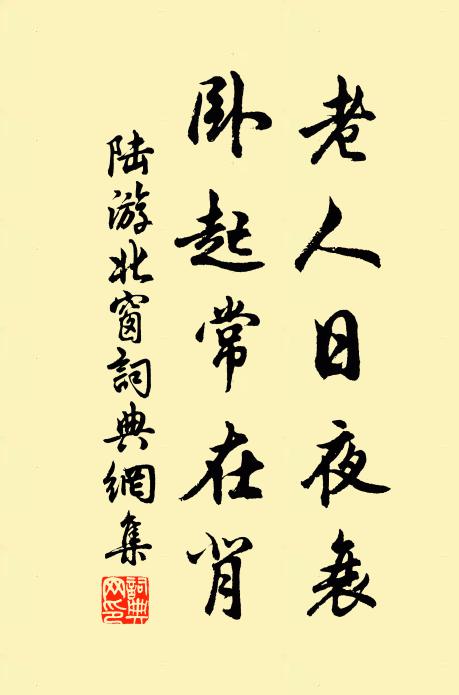 老人日夜衰
卧起常在背
陆游北窗詞典網集
詞典
网印